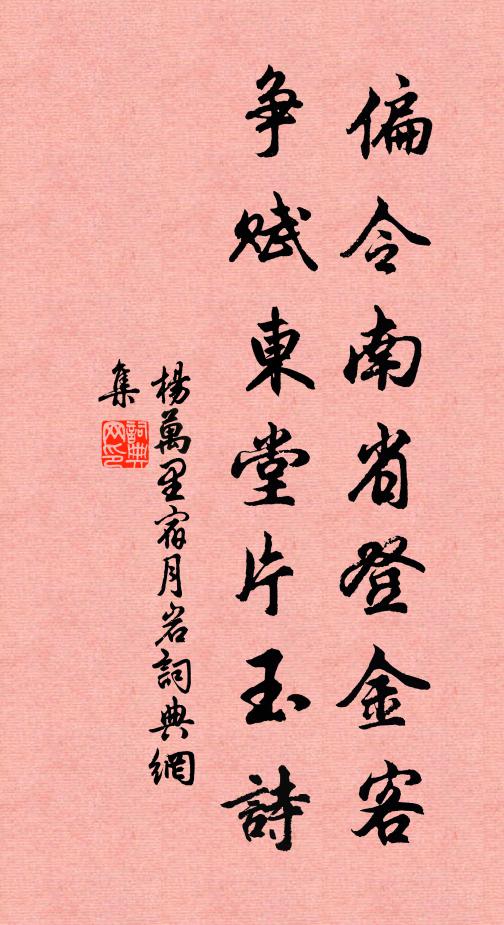 偏令南省登金客
争赋東堂片玉詩
楊萬里宿月岩詞典網
集
詞典网印